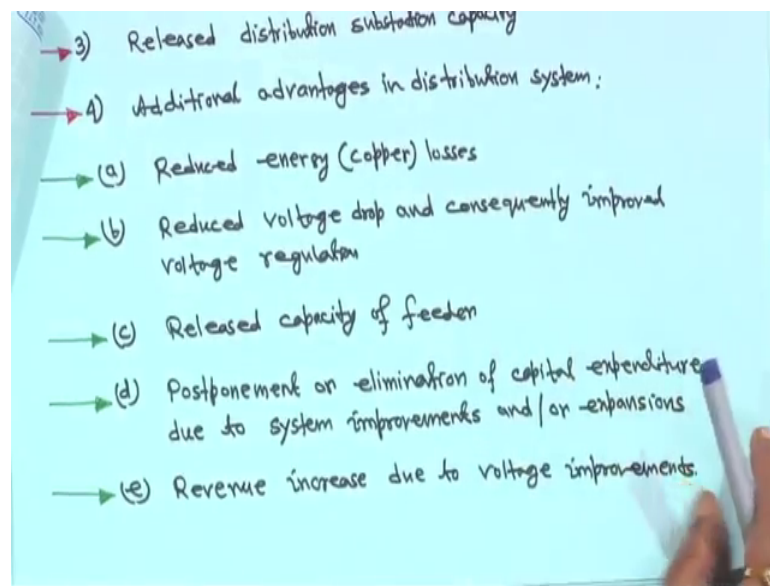 3) Released distribution substation capacity
4) Additional advantages in distribution system:
(a) Reduced energy (copper) losses
(b) Reduced voltage drop and consequently improved
voltage regulation
(c) Released capacity of feeder
(d) Postponement or elimination of capital expenditure
due to system improvements and/or expansions
(e) Revenue increase due to voltage improvements.